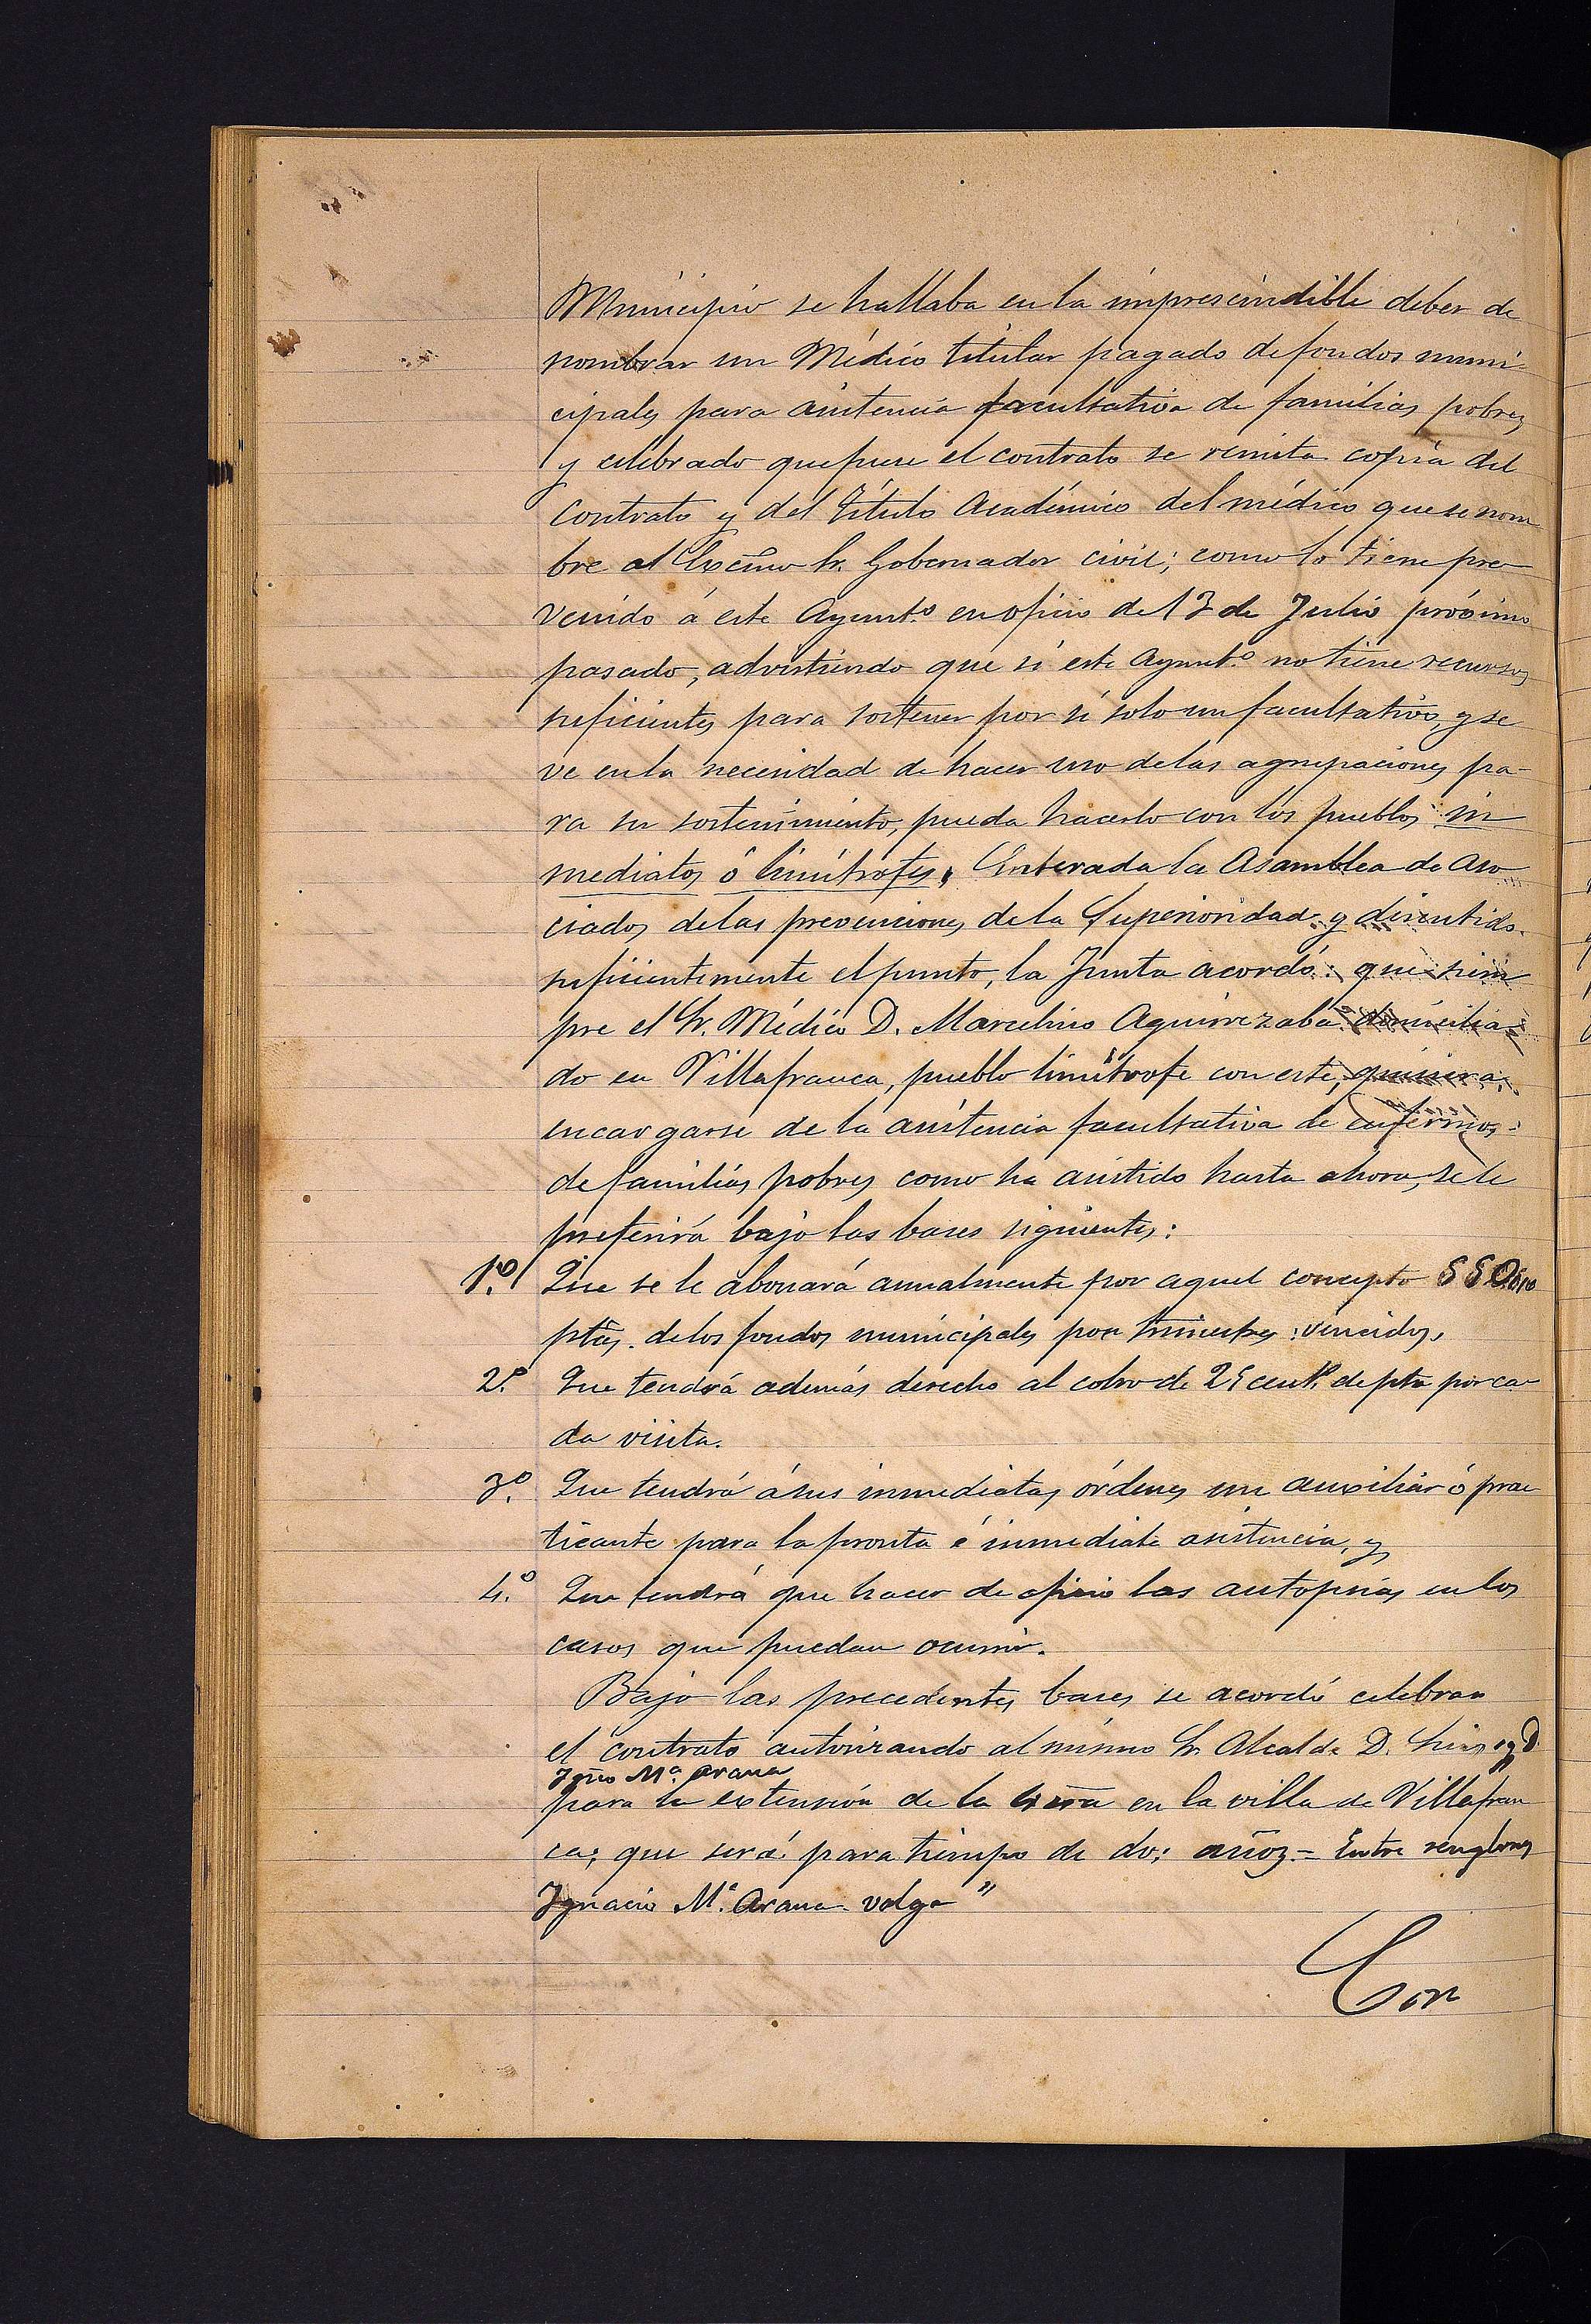 Municipio se hallaba en la imprescindible deber de
nombrar un Médico titular pagado de fondos muni-
cipales para asistencia facultativa de familias pobres
y celebrado que fuere el contrato se remita copia del
contrato y del título Académico del médico que se nom
bre al Excmo Sr. Gobernador civil; como lo tiene pre
venido á este Ayunt.º en oficio de 13 de Julio próximo
pasado, advirtiendo que si este Ayunt.º no tiene recursos
suficientes para sostener por si solo un facultativo, y se
ve en la necesidad de hacer uso de las agrupaciones pa-
ra su sostenimiento, pueda hacerlo con los pueblos in
mediatos ó limítrofes. Enterada la Asamblea de aso
ciados de las prevenciones de la Superioridad y discutido
suficientemente el punto, la Junta acordó: que siem
pre el Sr. Médico D. Marcelino Aguirrezaba domicilia
do en Villafranca, pueblo limítrofe con este, quisiera
encargarse de la asistencia facultativa de enfermos
de familias pobres como ha asistido hasta ahora, se le
preferirá bajo las bases siguientes:
1.º Que se le abonará anualmente por aquel concepto 550
ptas. de los fondos municipales por trimestres vencidos.
2.º Que tendrá además derecho al cobro de 25 cent.s de pta por ca-
da visita.
3.º Que tendrá á sus inmediatas órdenes un auxiliar ó prac
ticante para la pronta é inmediata asistencia, y
4.º Que tendrá que hacer de oficio las autopsias en los
casos que puedan ocurrir.
Bajo las precedentes bases se acordó celebrar
el contrato autorizando al mismo Sr Alcalde D. Luis y D.
Ygno M.ª Arana
para la extensión de la en la villa de Villafran
ca; que será para tiempo de dos años.= Entre renglones
Ygnacio M.ª Arana. valga"
Con